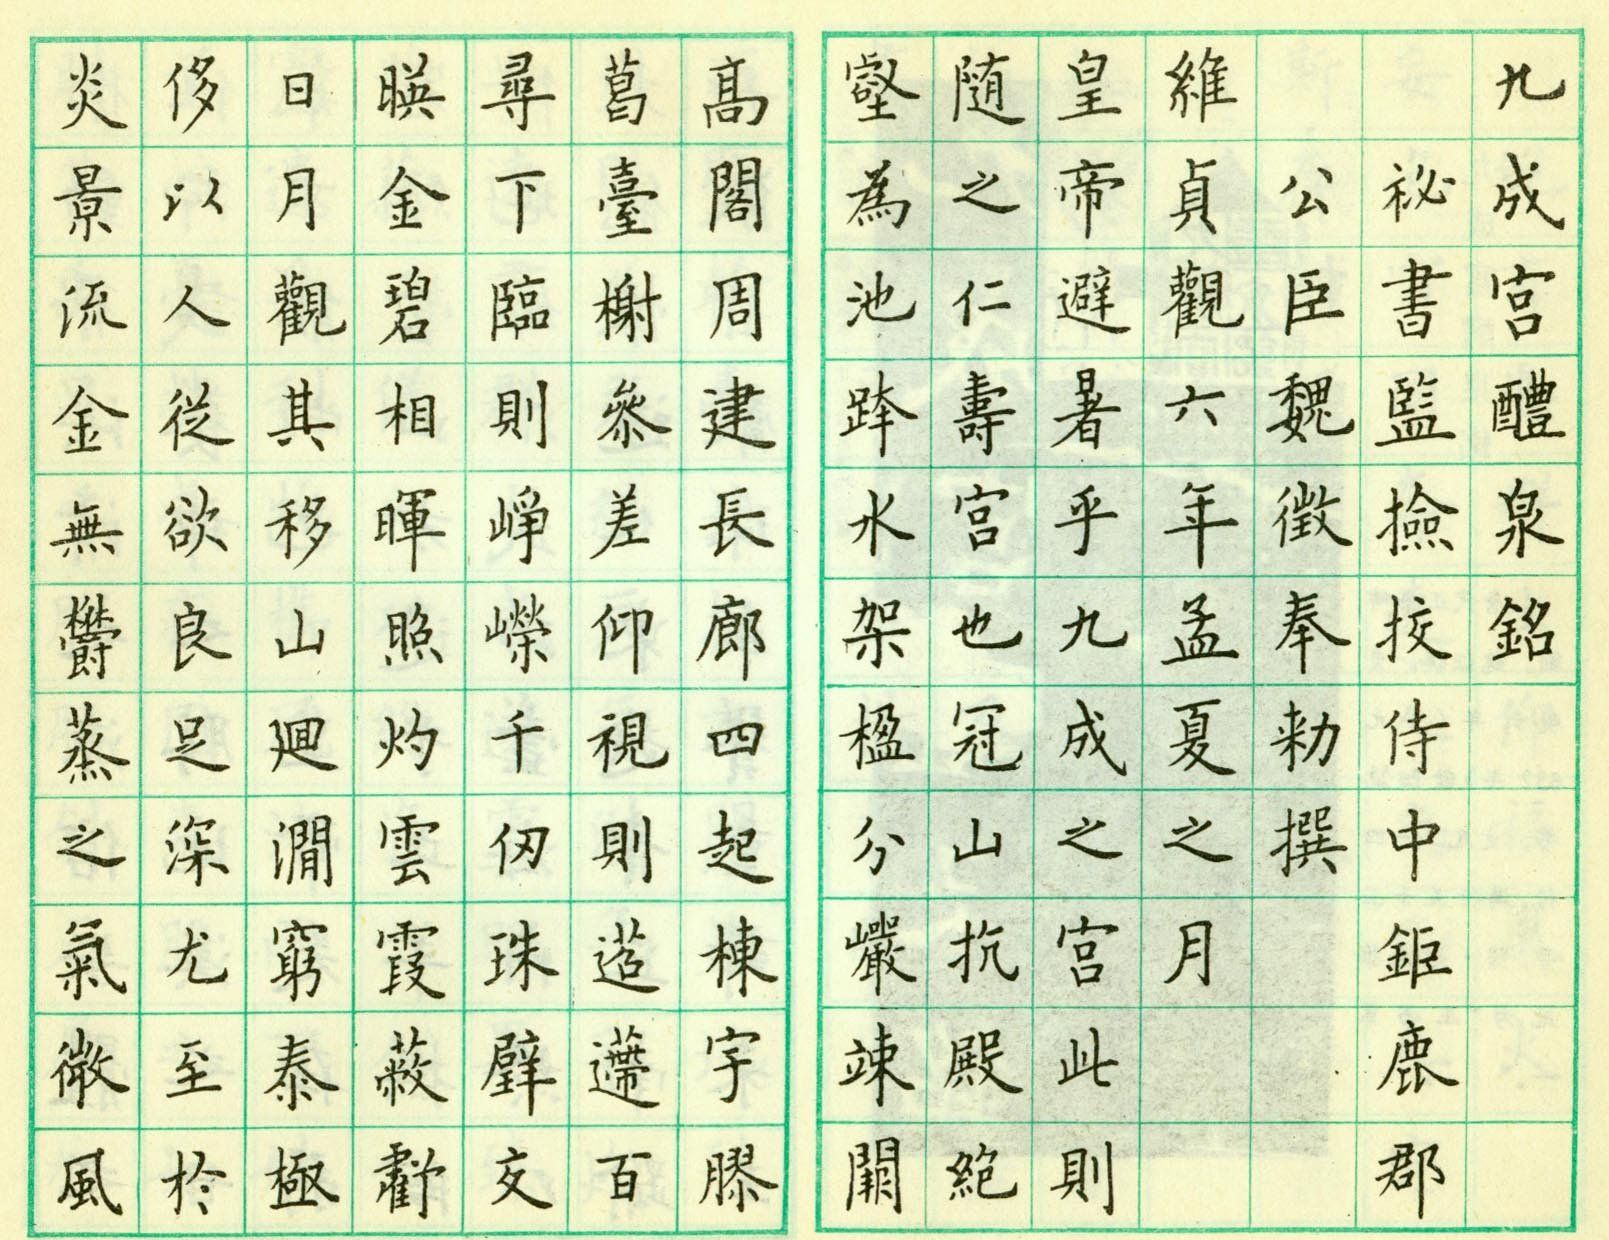 九成宫醴泉銘
祕書監撿挍侍中鉅鹿郡
公臣魏徵奉勑撰
維貞觀六年孟夏之月
皇帝避暑乎九成之宫此則
随之仁壽宫也冠山抗殿絶
壑為池跨水架楹分巖竦闕
髙閣周建長廊四起棟宇膠
葛臺榭參差仰視則迢遰百
尋下臨則崢嶸千仞珠璧交
暎金碧相暉照灼雲霞蔽虧
日月觀其移山廻澗窮泰極
侈以人従欲良足深尤至於
炎景流金無欝蒸之氣微風